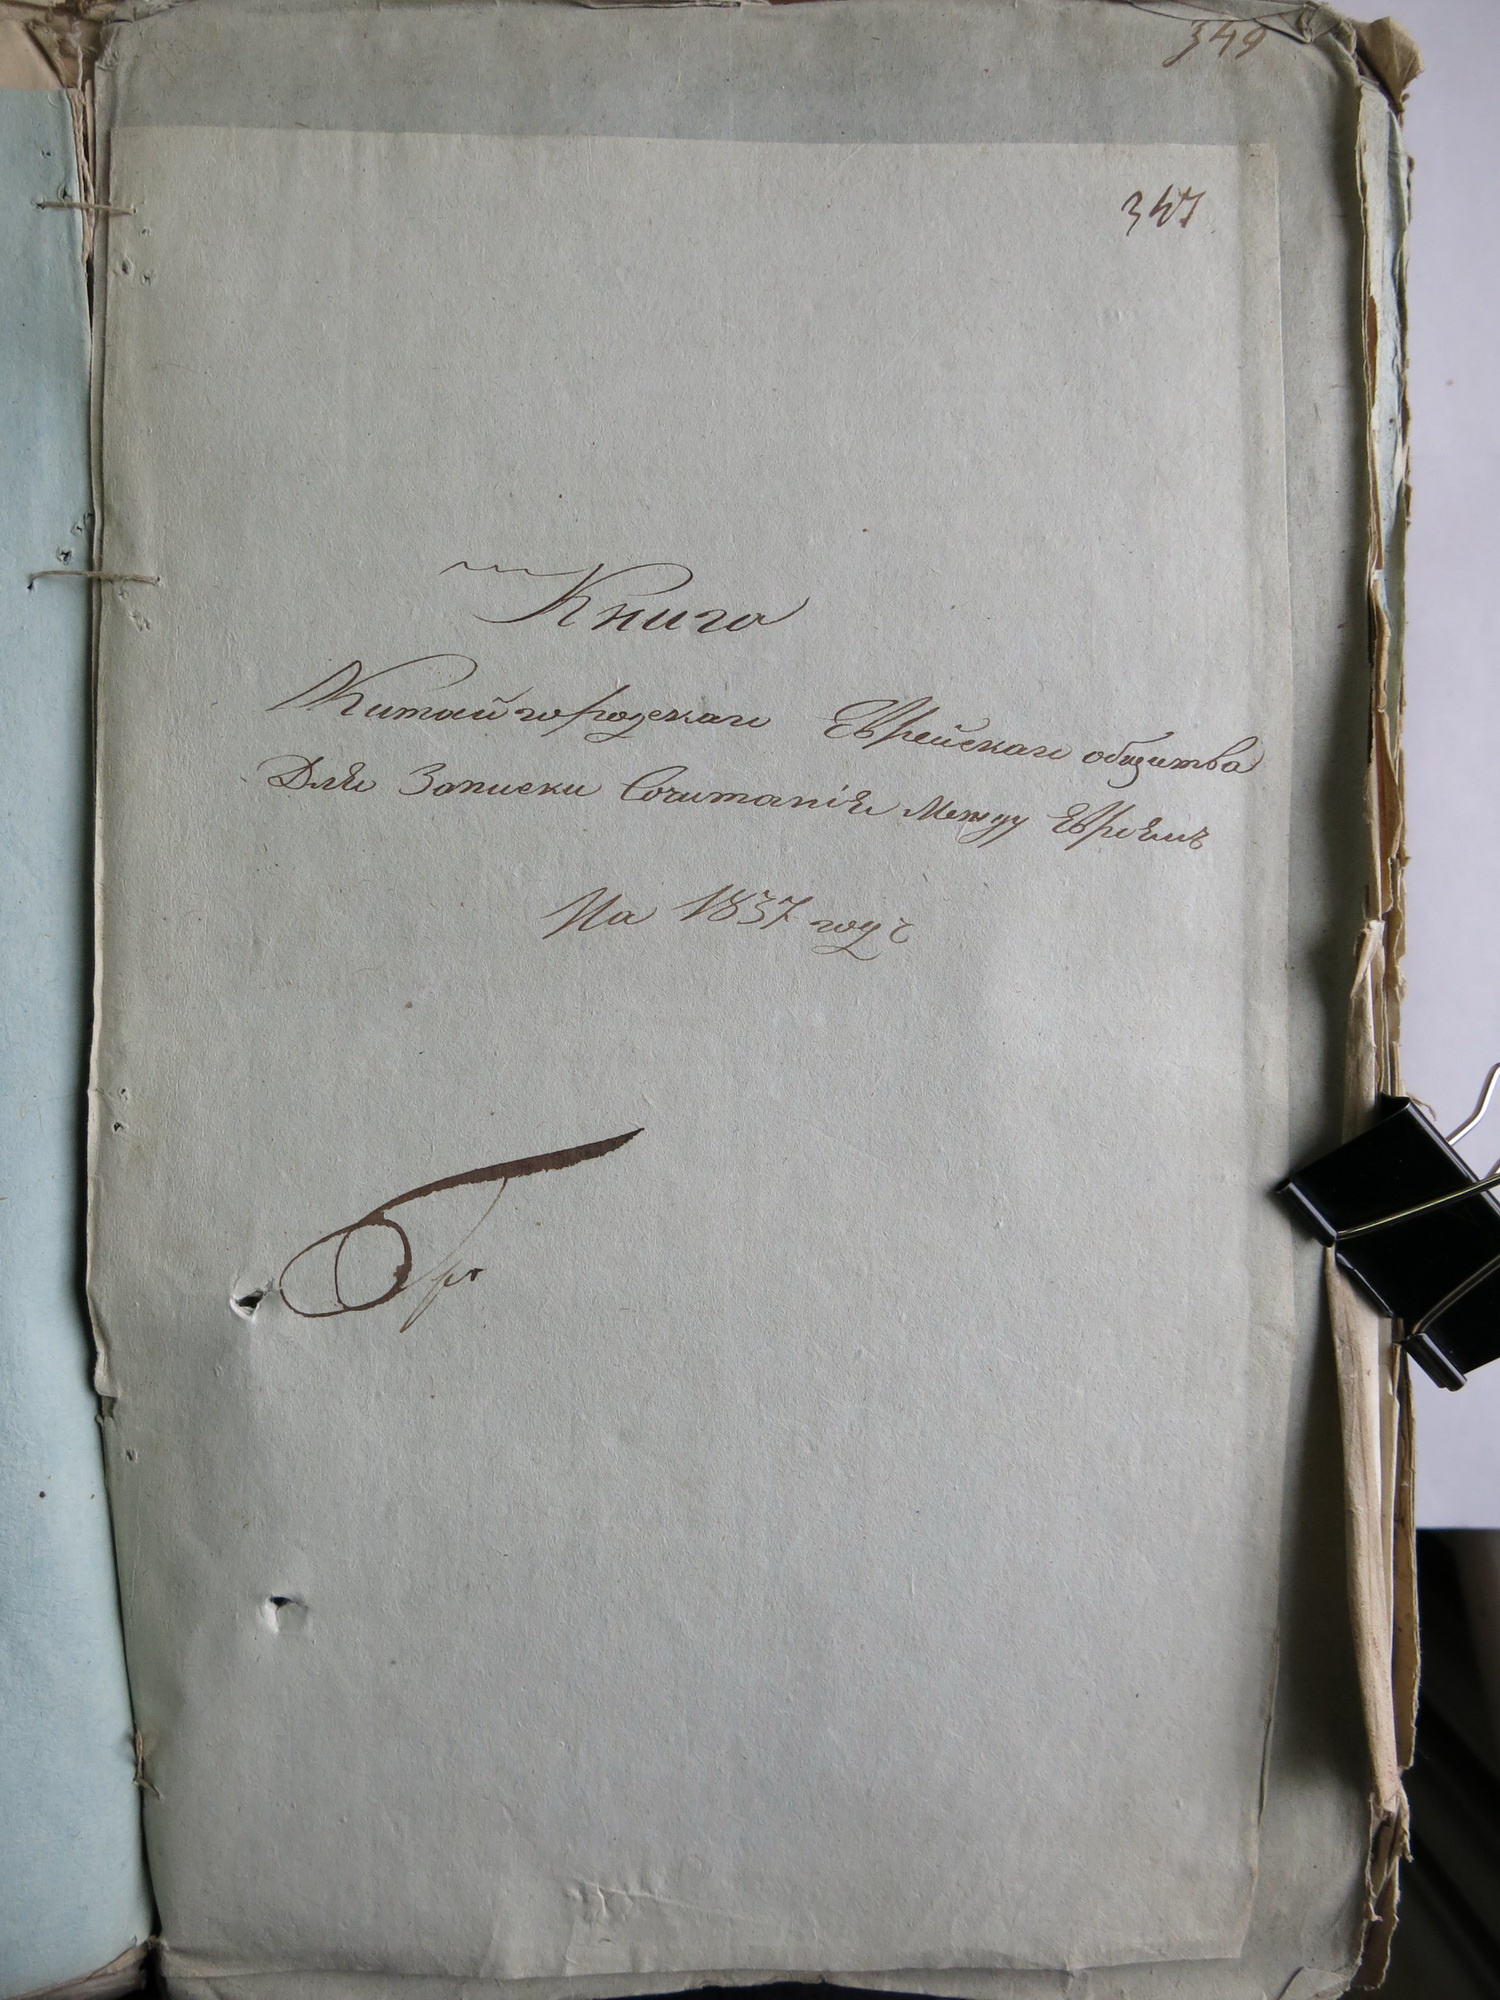 349
347
Книга
Китайгородскаго Еврейскаго общества
Для Записки Сочитанія Между Евреямъ
На 1837 годъ